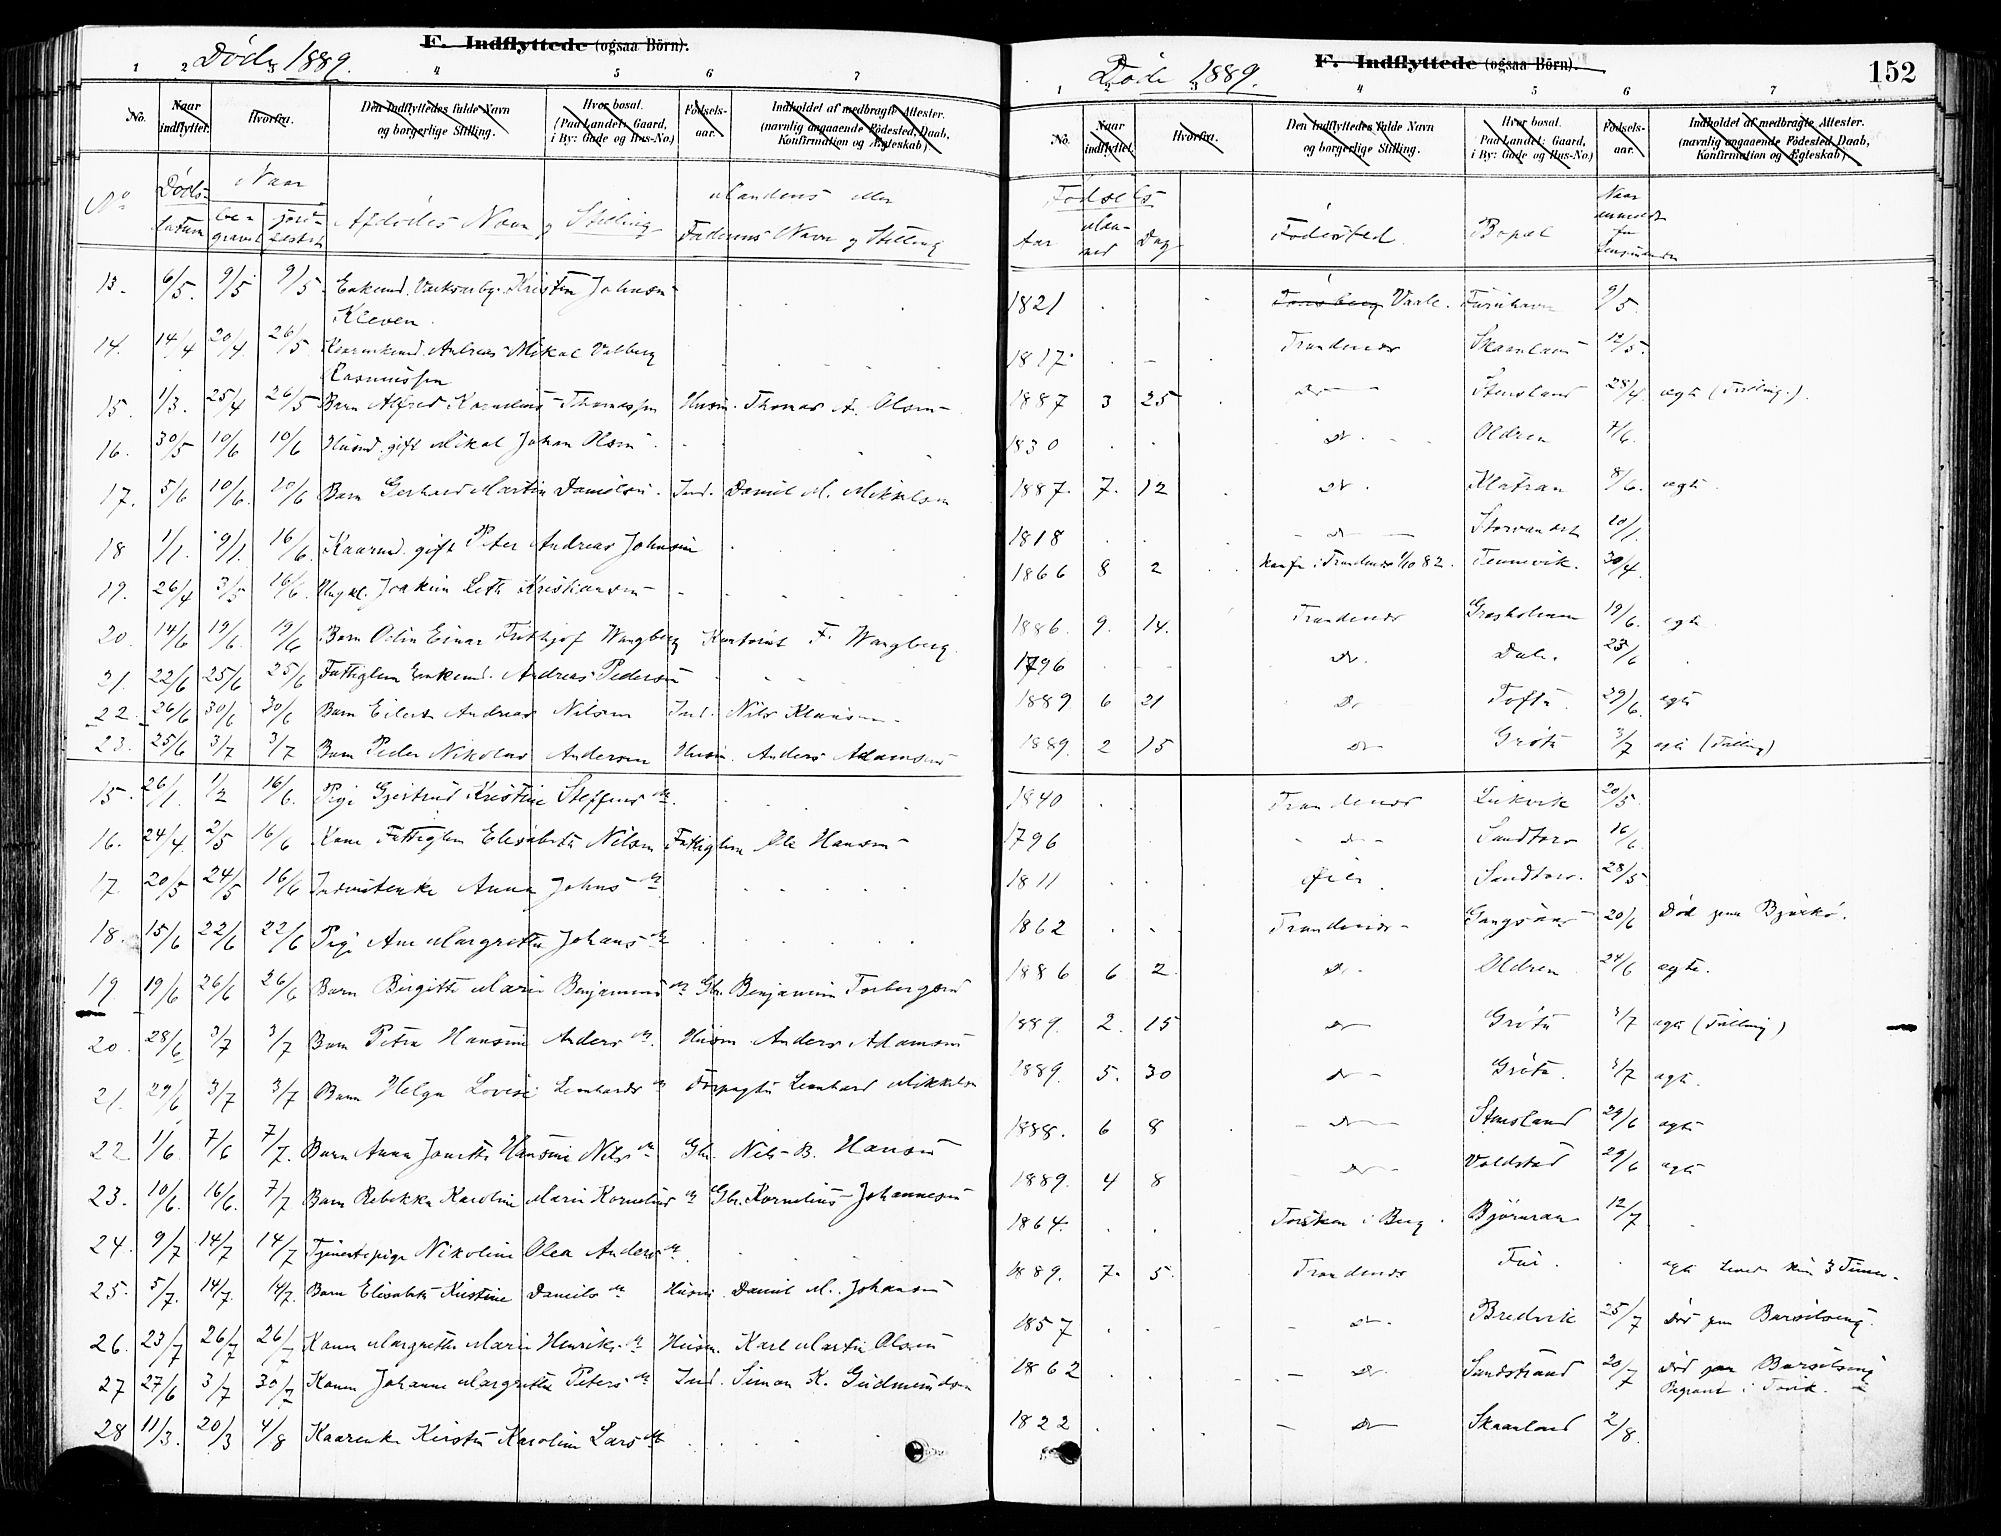 Døde 1889.
F. Indflyttede (ogsaa Börn).
1 2 3 4 5 6 7
No. Naar indflyttet. Hvorfra. Den Indflyttedes fulde Navn og borgerlige Stilling. Hvor bosat. (Paa Landet: Gaard, i By: Gade og Hus-No.) Födsels-aar. Indholdet af medbragte Attester. (navnlig angaaende Födested, Daab, Konfirmation og Ægteskab)
No Døds-datum Naar be-gravet jord-fæstet Afdødes Navn og Stilling Mandens eller Faderens Navn og Stilling
13. 6/5. 9/5 9/5 Enkemd. Kristen Johnsen
Kleven.
14. 14/4 20/4 26/5 Andreas Mikal Valberg
Rasmussen
15. 1/3. 25/4 26/5 Barn Alfred Kornelius Thomassen Husm. Thomas A. Olsen
16. 30/5 10/6 10/6 Husmd. gift Mikal Johan Olsen
17. 5/6 10/6. 10/6 Barn Gerhard Martin Danielsen. Ind. Daniel M. Mikkelsen
18 1/1. 9/1. 16/6. Kaarmd. gift Peter Andreas Johnsen
19. 26/4 3/5 16/6. Ungkl. Joakim Leth Kristiansen
20. 14/6 19/6. 19/6 Barn Odin Einar Frithjof Wangberg Kontorist F. Wangberg.
21. 22/6 25/6 25/6 Fattiglem Enkemd. Andreas Pedersen
22. 26/6 30/6 30/6 Barn Eilert Andreas Nilsen Ind. Nils Klausen
23. 25/6 3/7 3/7 Barn Peder Nikolas Andersen Husm. Anders Adamsen
15. 26/1. 1/2 16/6. Pige Gjertrud Kristine Steffensdtr.
16. 24/4 2/5 16/6 Kone Fattiglem Elisabeth Nilsen Fattiglem Ole Hansen
17. 20/5 24/5 16/6 Inderstenke Anna Johnsdtr
18. 15/6 22/6 22/6 Pige Ane Margrethe Johansdtr
19 19/6 26/6 26/6 Barn Birgitte Marie Benjaminsdtr Gbr. Benjamin Torbergsen
20. 28/6 3/7 3/7 Barn Petra Hansine Andersdtr. Husm Anders Adamsen
21. 29/6 3/7 3/7 Barn Helga Lovise Lenhardsdtr Forpagter Lenhard Mikkelsen
22 1/6. 7/6 7/7. Barn Anna Jonette Hansine Nilsdtr Gbr. Nils B. Hansen
23. 10/6. 16/6. 7/7 Barn Rebekka Karoline Marie Korneliusdtr Gbr. Kornelius Johannesen
24. 9/7 14/7 14/7 Tjenestepige Nikoline Olea Andersdtr.
25. 5/7. 14/7. 14/7. Barn Elisabeth Kristine Danielsdtr Husm. Daniel M. Johansen
26. 23/7 26/7 26/7 Kone Margrethe Marie Henriksdtr Husm. Karl Martin Olsen
27 27/6 3/7 30/7 Konen Johanne Margrethe Petersdtr Ind. Simon K. Gudmundsen
28 11/3. 20/3 4/8 Kaarenke Kirsten Karoline Larsdtr
Døde 1889.
F. Indflyttede (ogsaa Börn).
152
1 3 4 5 6 7
No. Naar indflyttet. Hvorfra. Den Indflyttedes fulde Navn og borgerlige Stilling. Hvor bosat. Paa Landet: Gaard, i By: Gade og Hus-No.) Födsels-aar. Indholdet af medbragte Attester. (navnlig angaaende Födested Daab, Konfirmation og Ægteskab)
Fødsels Aar Maaned Dag Fødested. Bopæl Naar anmeldt for Lensmanden
1821 Tønsberg Vaale. 9/5
1817. Trondenes Skaanland 12/5.
1887 3 25 do Stensland 28/4 ægte (Tvilling.).
1830 do Oldren 7/6.
1887. 7. 12 do Klatran 8/6. ægte
1818 do Storvandet 10/1.
1866 8 2 konf. i Trondenes 1/10 82. Tennevik. 30/4.
1886. 9. 14. Trondenes Grasholmen 19/6. ægte
1796 do. Dale. 25/6
1889 6 21 Do Tofte 29/6. ægte
1889. 2 15 do Grøtø 3/7 ægte (Tvilling)
1840 Trondenes Leikvik 20/5.
1796 do Sandtorv 16/6.
1811 Sandtorv. 28/5
1862 Trondenes Gangsaas 20/6 Død paa Bjarkø.
1886 6 2 do Oldren 24/6 ægte.
1889. 2. 15 do Grøtø 3/7 ægte (Tvilling)
1889. 5. 30 do Grøtø. 3/7 ægte.
1888. 6 8 do Stensland 29/6 ægte
1889. 4 8 do Voldstad 29/6 ægte
1864. Torsken i Berg. Bjørnraa 12/7
1889. 7. 5. Trondenes ægte levede kun 3 Timer.
1857 do Bredvik 25/7 Død paa Barselseng.
1862 do Sandstrand 20/7 død paa Barselseng
Begravet i
1822 do Skaanland 2/8.